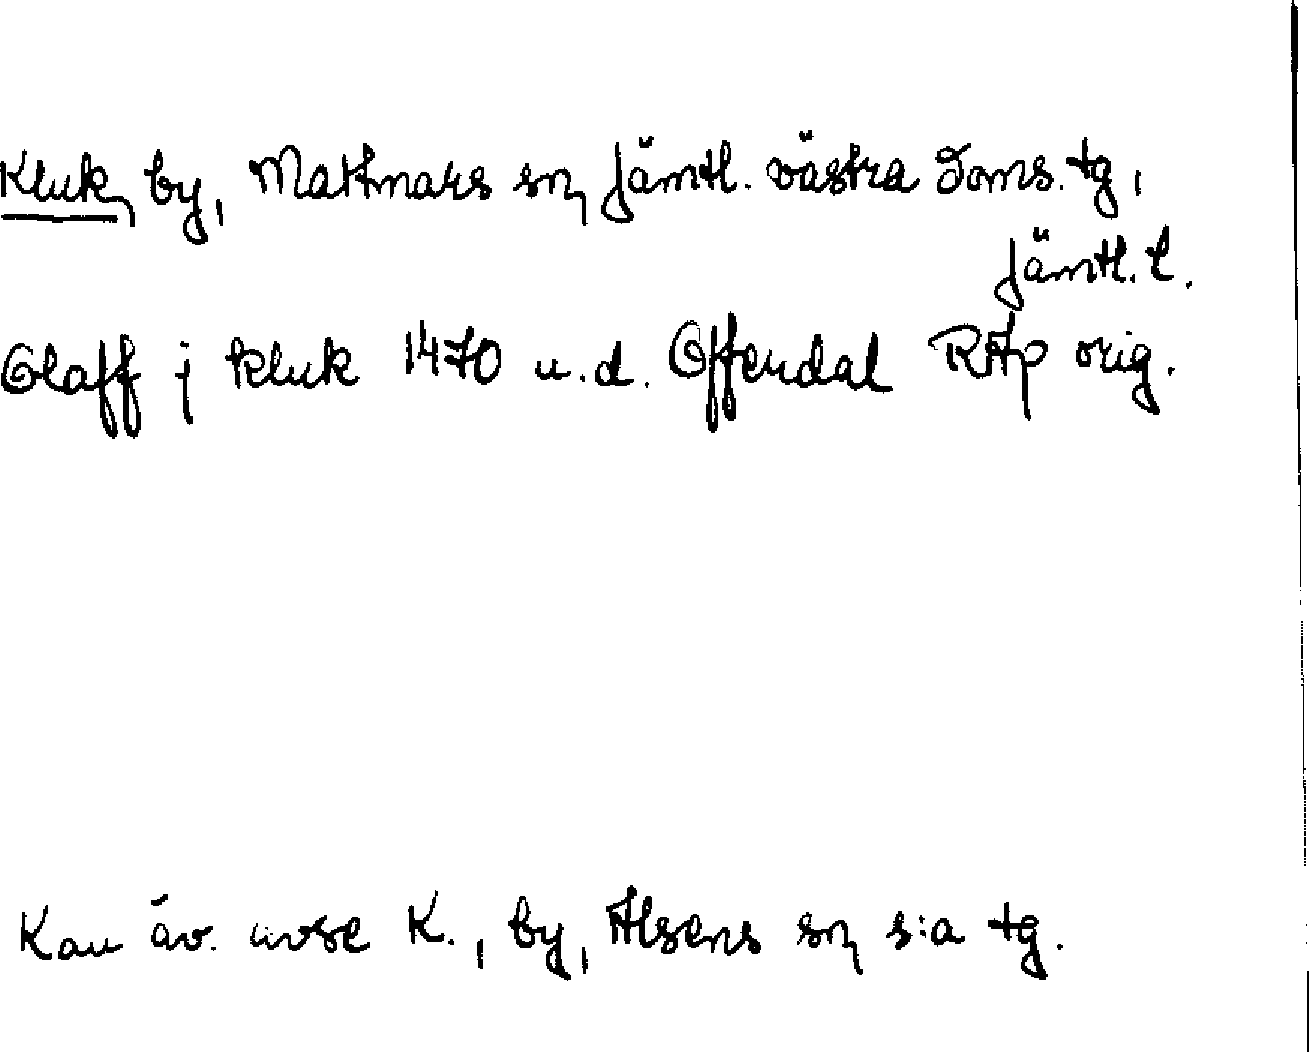 Kluk, by, Mattmars sn, Jämtl. västra doms. tg,
Jämtl. l.
Olaff j kluk 1470 u.d. Offerdal RAp orig.
Kan äv. avse K., by, Alsens sn, s:a tg.